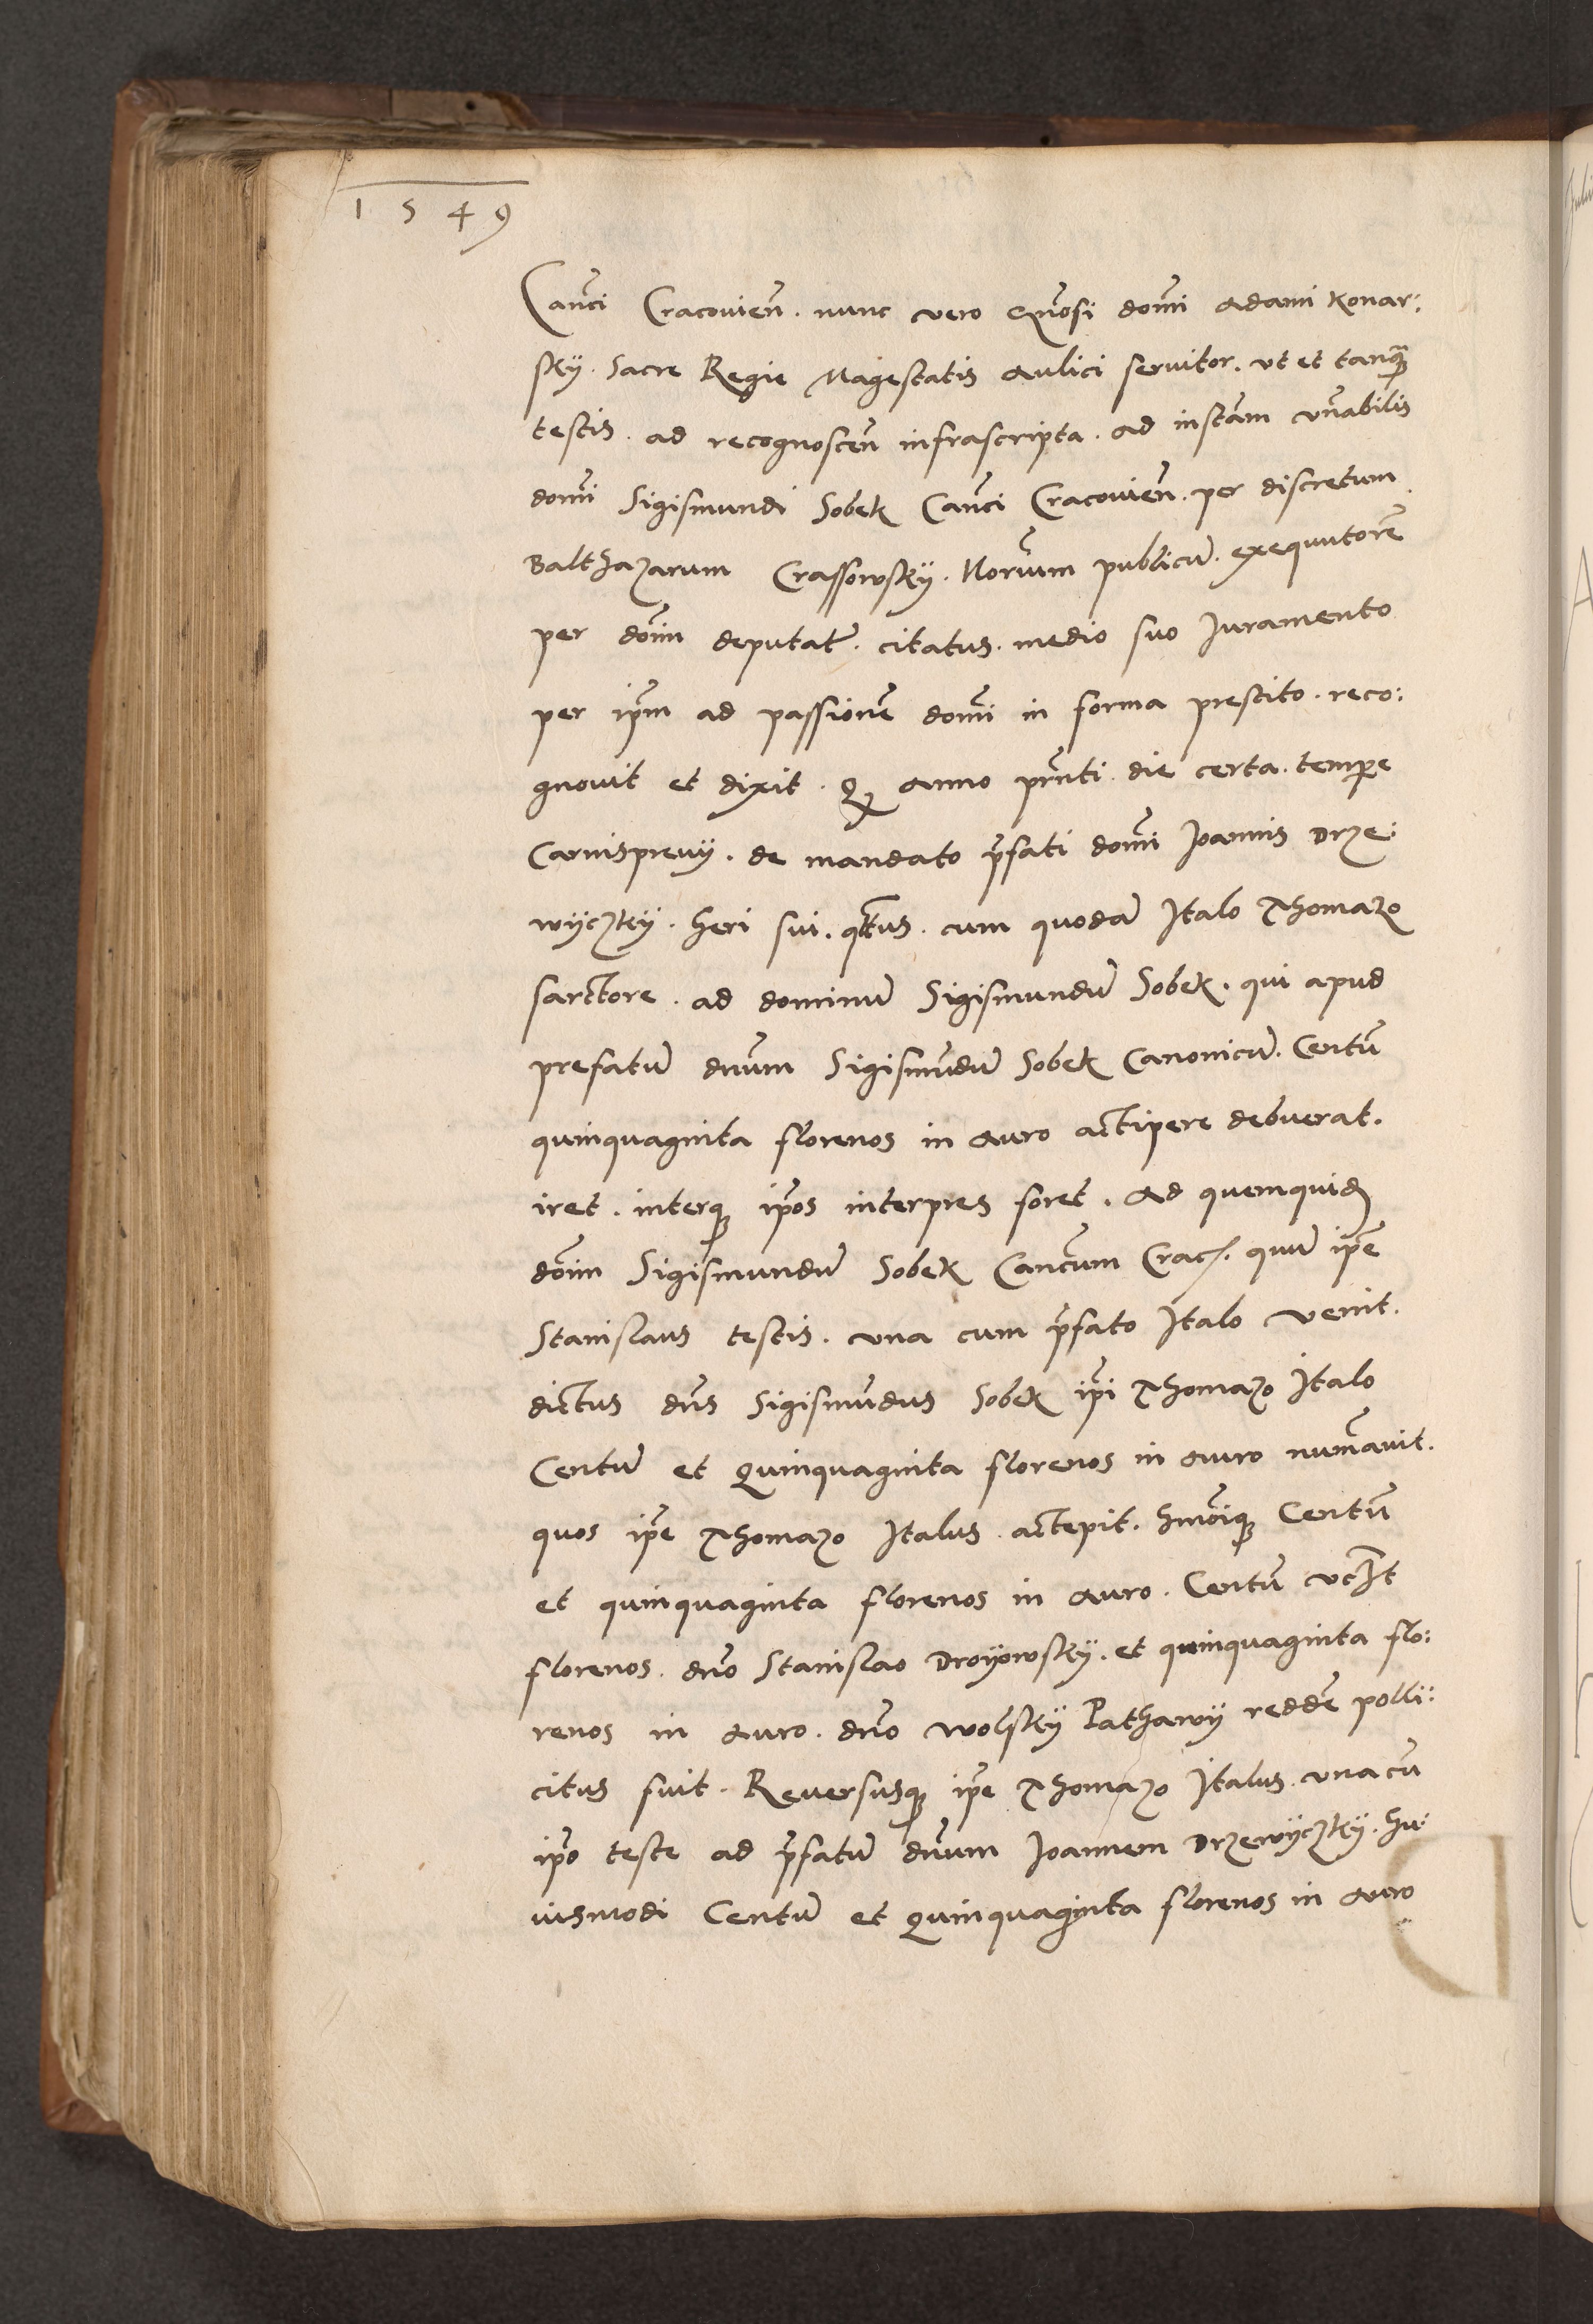 1549
Canci Cracovien. nunc vero Gnosi domi Adami Konar:
sky. Sacre Regie Magestatis Aulici servitor. ut et tanq̃
testis. ad recognoscen infrascripta. ad instam vnabilis
domi Sigismundi Sobek Canci Cracovien. per discretum
Balthazarum Crassowsky. Norium publicũ. exequutorẽ
per domi deputat. citatus. medio suo Iuramento
per ipm ad passionẽ domi in forma prestito. reco:
gnovit et dixit. Q anno prnti die certa. tempe
Carnisprevy. de mandato pfati domi Joannis Drze:
wyczky. heri sui. qtus. cum quodã Italo Thomazo
sarctore. ad dominũ Sigismundũ Sobek. qui apud
prefatũ dnum Sigismũdũ Sobek Canonicũ. Centũ
quinquaginta florenos in auro accipere debuerat.
iret. interq ipos interpres foret. Ad quemquid
domi Sigismundũ Sobek Cancum Crac. quũ ipe
Stanislaus testis. una cum pfato Italo venit.
dictus dns Sigismũdus Sobek ipi Thomazo Italo
Centũ et Quinquaginta florenos in auro numavit.
quos ipe Thomazo Italus. accepit. hmoiq Centũ
et quinquaginta florenos in auro. Centũ vclt
florenos. dno Stanislao Droyowsky. et quinquaginta flo:
renos in auro. dno Wolsky Pathawy reddẽ polli:
citus fuit. Reversusq ipe Thomazo Italus. unacũ
ipo teste ad pfatũ dnum Joannem Drzewyczky. hu:
iusmodi Centũ et Quinquaginta florenos in auro